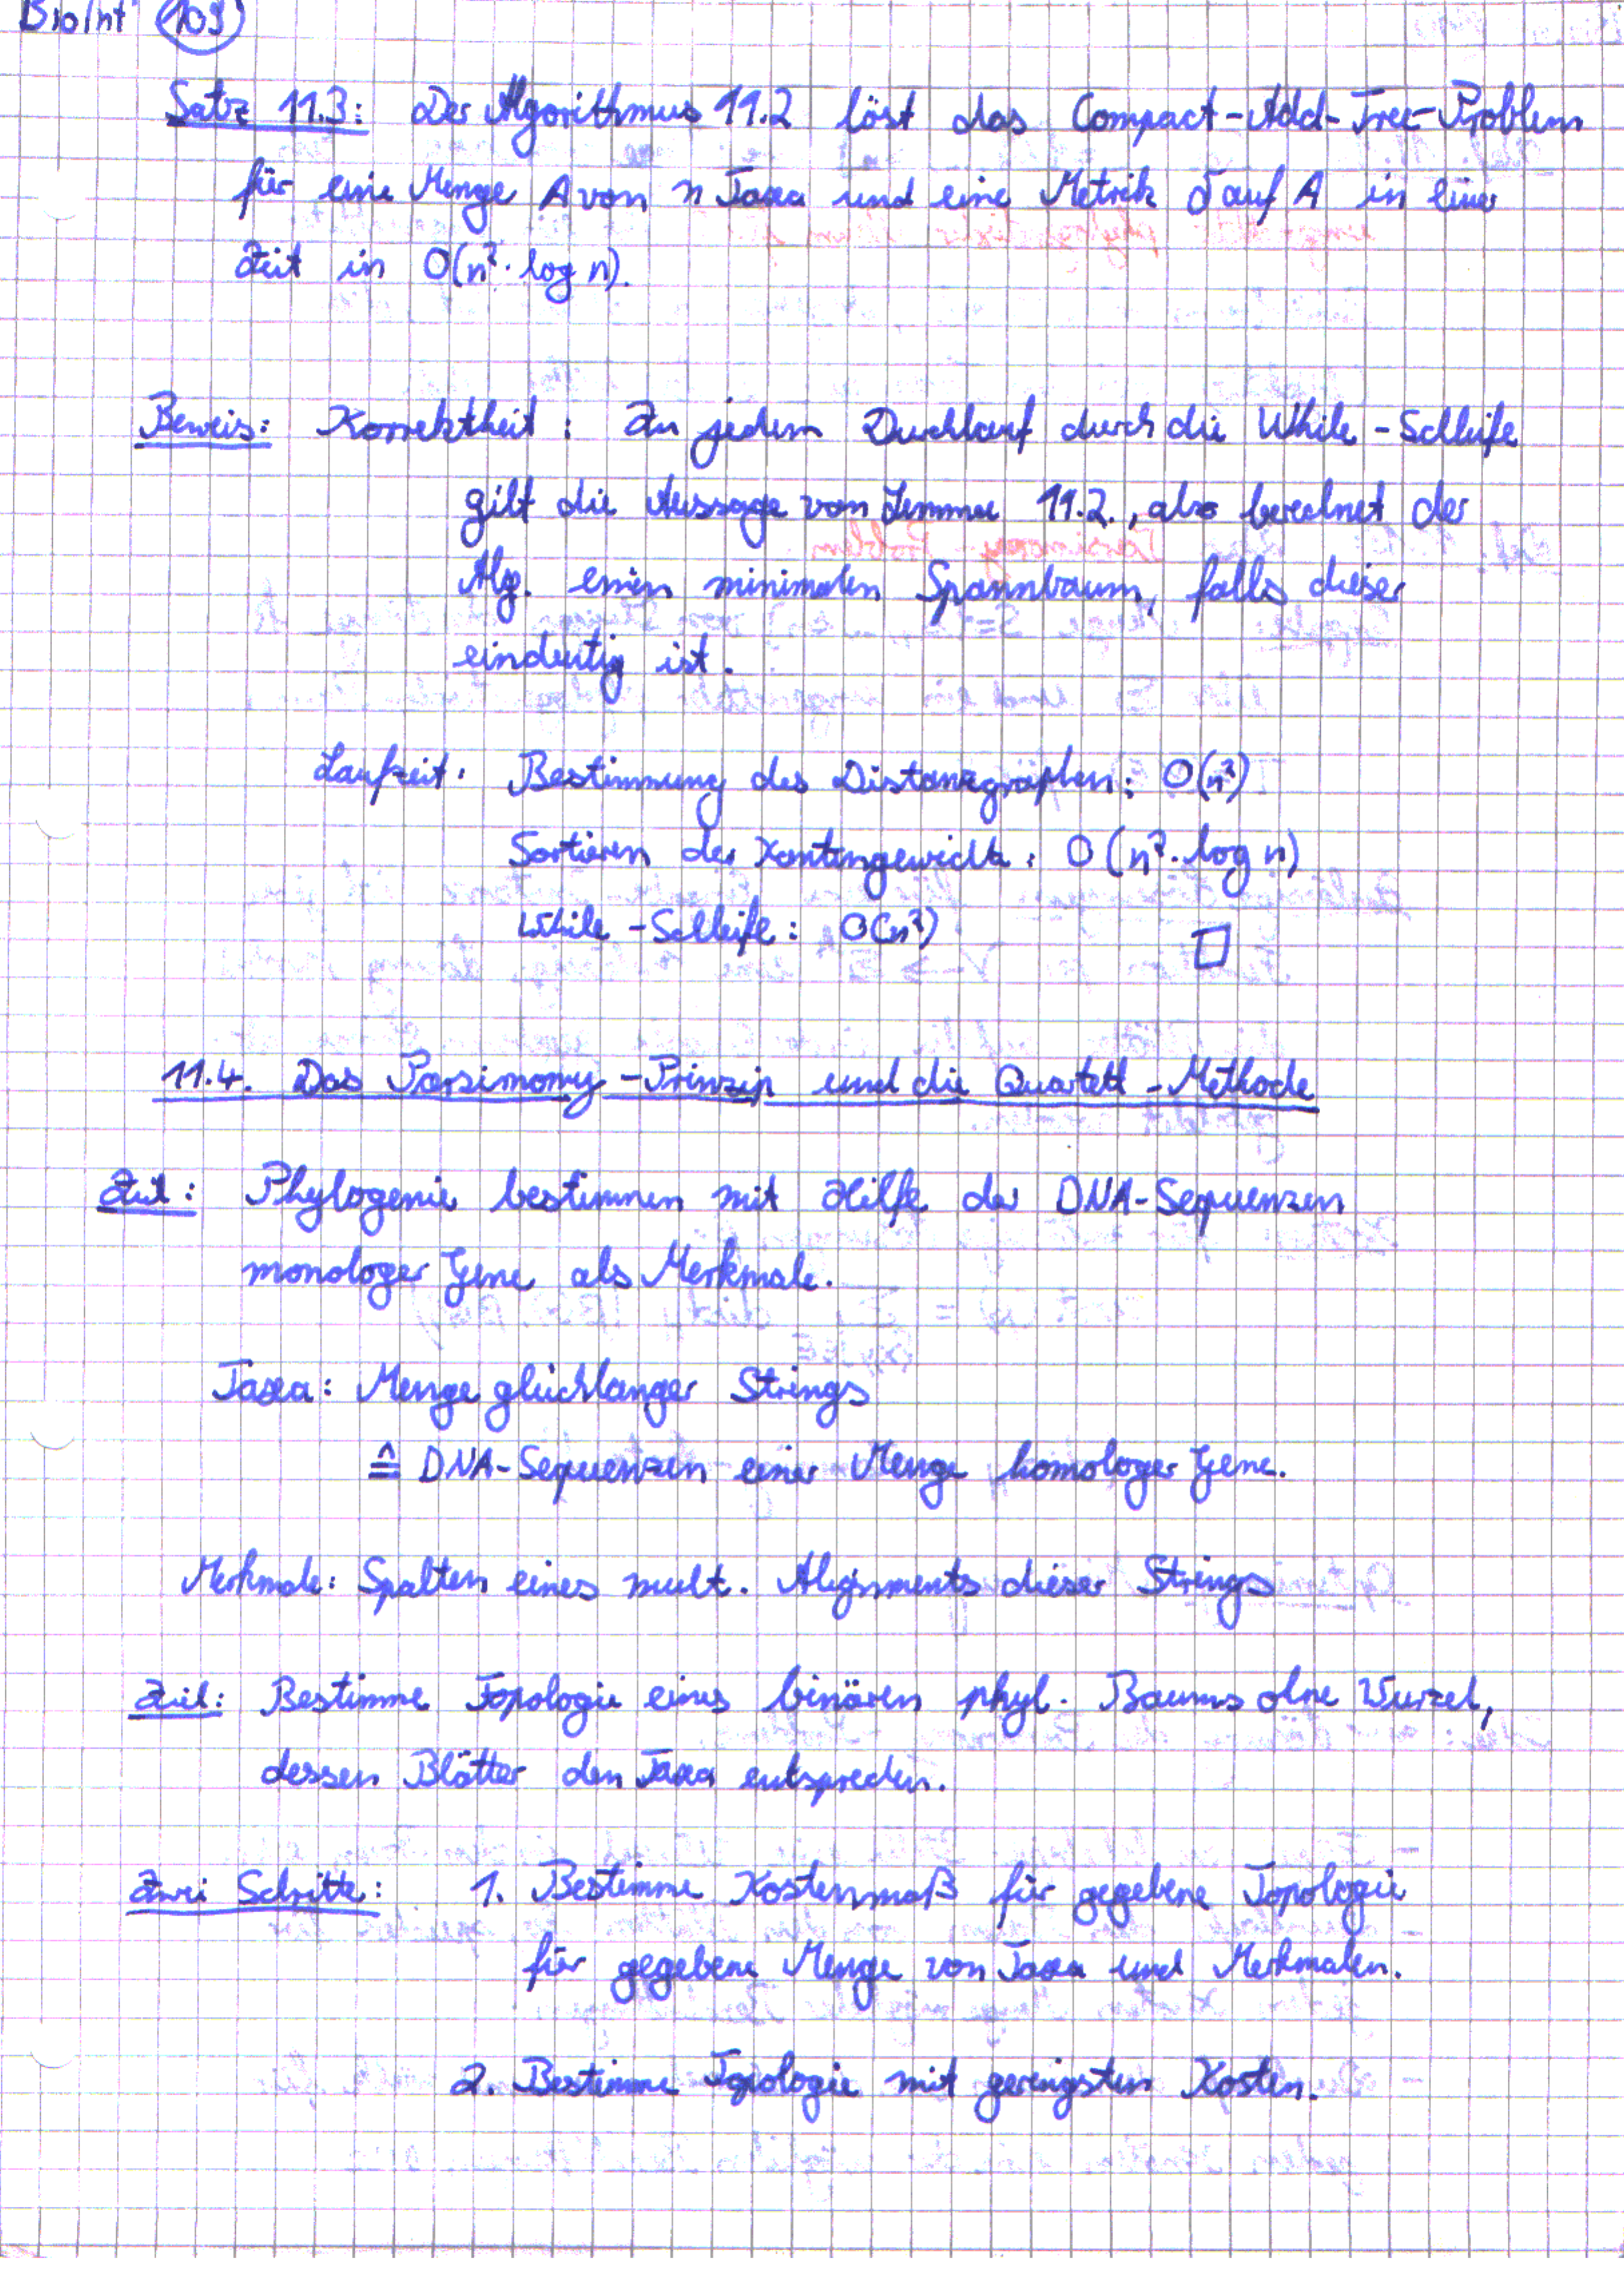 BioInf 109
Satz 11.3: Der Algorithmus 11.2 löst das Compact-Add-Tree-Problem
für eine Menge A von n Taxa und eine Metrik δ auf A in einer
Zeit in O(n²·log n).
Beweis: Korrektheit: In jedem Durchlauf durch die While-Schleife
gilt die Aussage von Lemma 11.2., also berechnet der
Alg. einen minimalen Spannbaum, falls dieser
eindeutig ist.
Laufzeit: Bestimmung des Distanzgraphen: O(n²)
Sortieren der Kantengewichte: O(n²·log n)
While-Schleife: O(n²) □
11.4. Das Parsimony-Prinzip und die Quartett-Methode
Ziel: Phylogenie bestimmen mit Hilfe der DNA-Sequenzen
monologer Gene als Merkmale.
Taxa: Menge gleichlanger Strings
≙ DNA-Sequenzen einer Menge homologer Gene.
Merkmale: Spalten eines mult. Alignments dieser Strings
Ziel: Bestimme Topologie eines binären phyl. Baums ohne Wurzel,
dessen Blätter den Taxa entsprechen.
Zwei Schritte: 1. Bestimme Kostenmaß für gegebene Topologie
für gegebene Menge von Taxa und Merkmalen.
2. Bestimme Topologie mit geringsten Kosten.